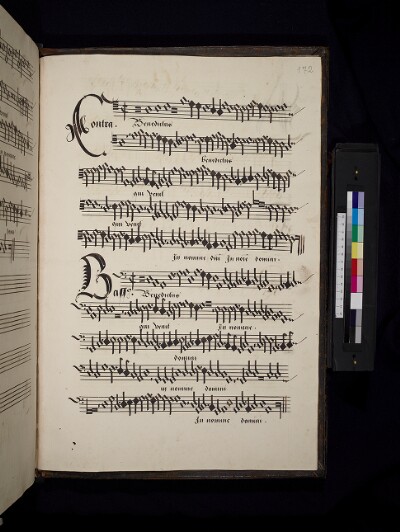 172
Contra.
Benedictus
benedictus
qui venit
qui venit
In nomine dni In noie domini.
Bass9.
Benedictus
qui venit In nomine.
domini
in nomine domini
In nomine domini.